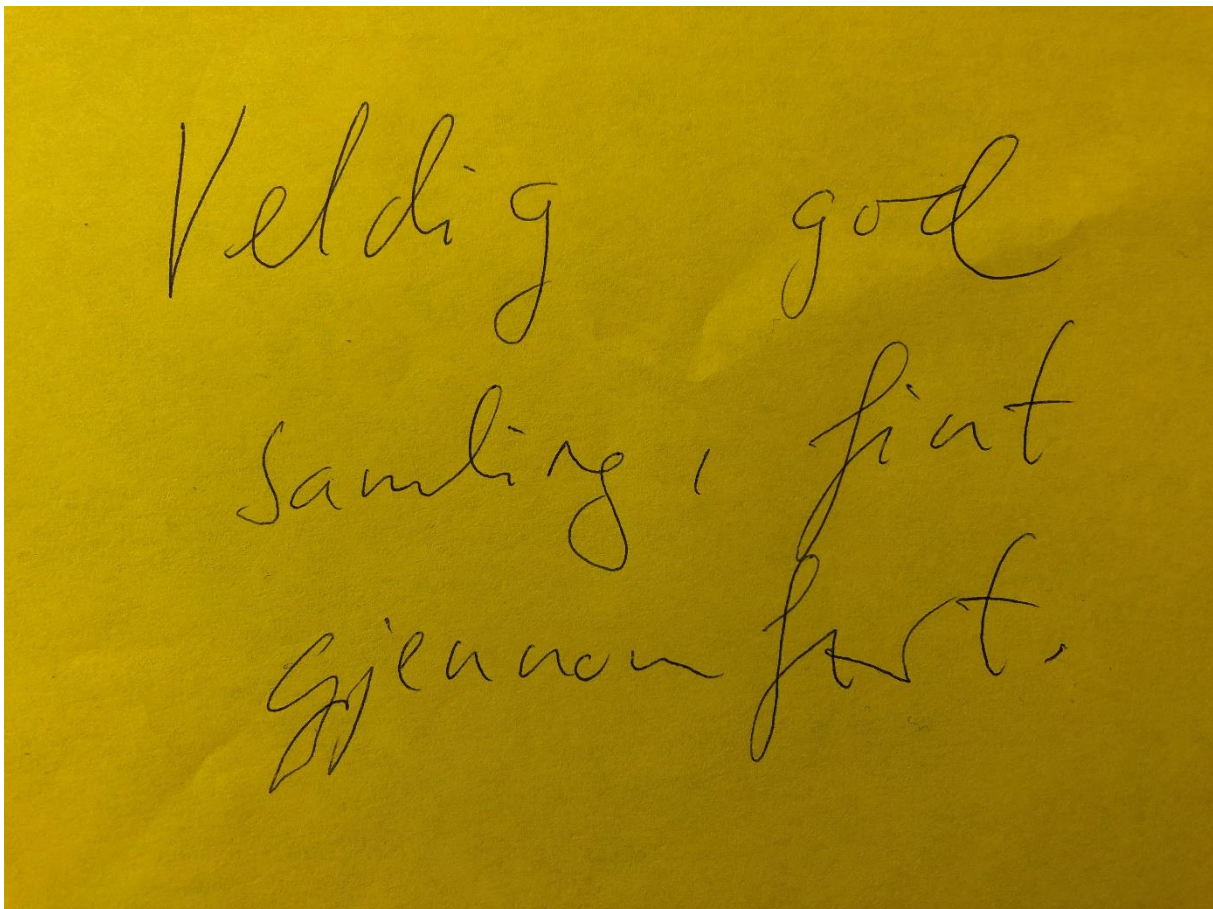 Veldig god
samling, fint
gjennomført.